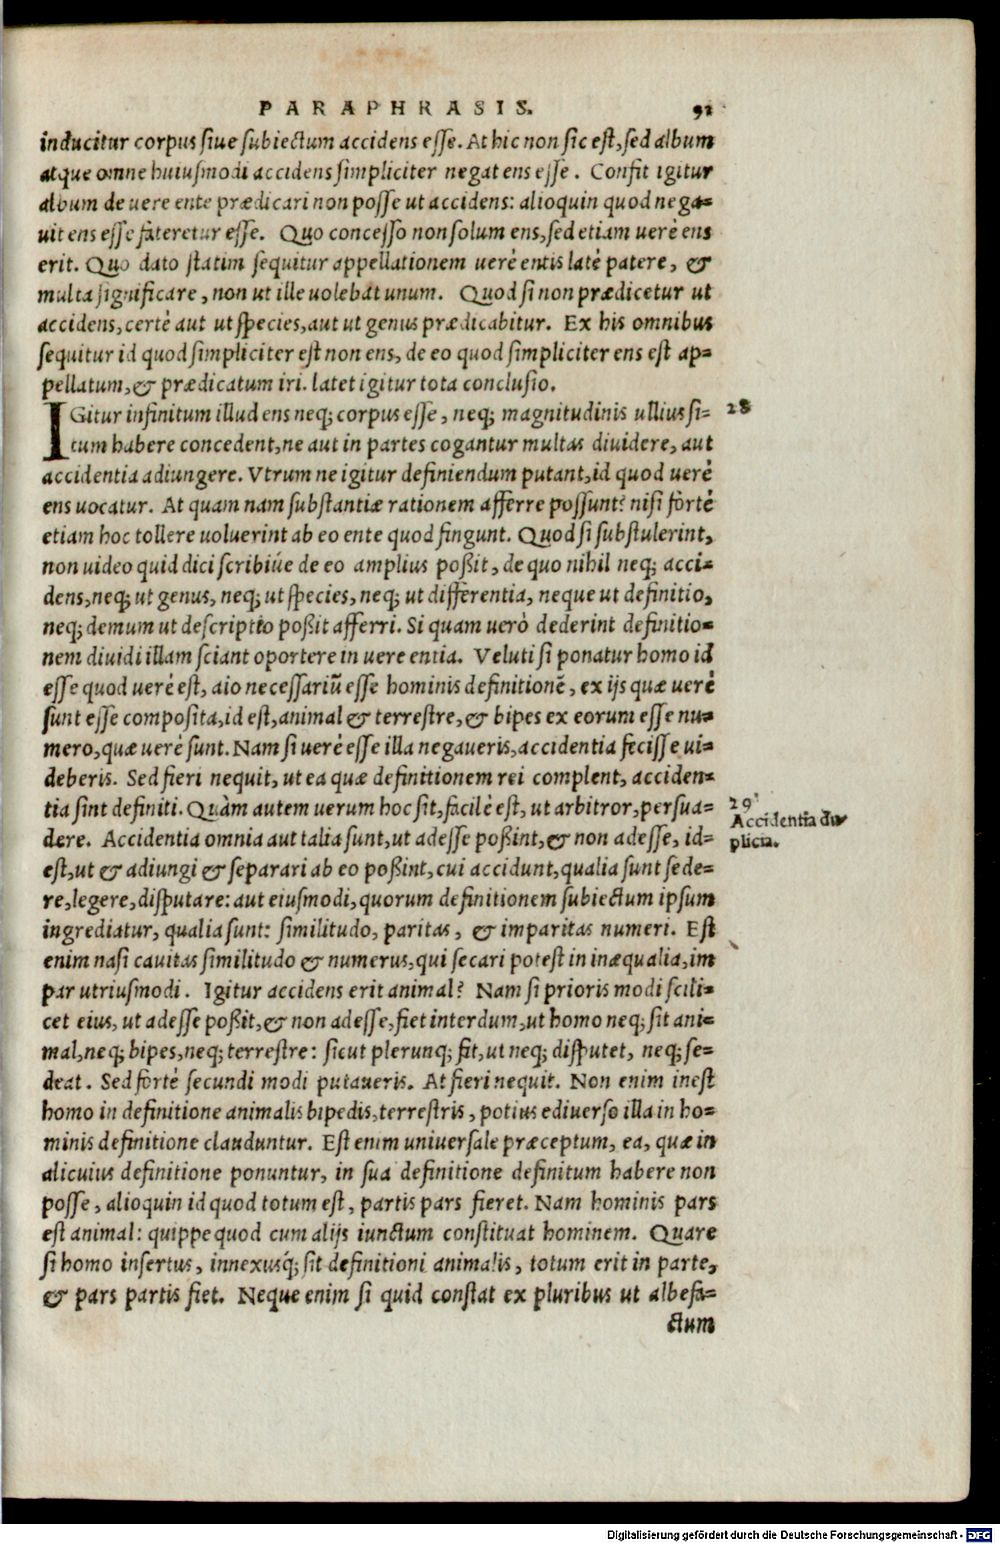 PARAPHRASIS. 91
inducitur corpus siue subiectum accidens esse. At hic non sic est, sed album
atque omne huiusmodi accidens simpliciter negat ens esse. Confit igitur
album de uere ente prædicari non posse ut accidens: alioquin quod nega=
uit ens esse fateretur esse. Quo concesso non solum ens, sed etiam uerè ens
erit. Quo dato statim sequitur appellationem uerè entis latè patere, &
multa significare, non ut ille uolebat unum. Quod si non prædicetur ut
accidens, certè aut ut species, aut ut genus prædicabitur. Ex his omnibus
sequitur id quod simpliciter est non ens, de eo quod simpliciter ens est ap=
pellatum, & prædicatum iri. latet igitur tota conclusio.
IGitur infinitum illud ens neq; corpus esse, neq; magnitudinis ullius si= 28
tum habere concedent, ne aut in partes cogantur multas diuidere, aut
accidentia adiungere. Vtrum ne igitur definiendum putant, id quod uerè
ens uocatur. At quam nam substantiæ rationem afferre possunt? nisi fortè
etiam hoc tollere uoluerint ab eo ente quod fingunt. Quod si substulerint,
non uideo quid dici scribiúe de eo amplius poßit, de quo nihil neq; acci=
dens, neq; ut genus, neq; ut species, neq; ut differentia, neque ut definitio,
neq; demum ut descriptio poßit afferri. Si quam uerò dederint definitio=
nem diuidi illam sciant oportere in uere entia. Veluti si ponatur homo id
esse quod uerè est, aio necessariũ esse hominis definitionẽ, ex ijs quæ uerè
sunt esse composita, id est, animal & terrestre, & bipes ex eorum esse nu=
mero, quæ uerè sunt. Nam si uerè esse illa negaueris, accidentia fecisse ui=
deberis. Sed fieri nequit, ut ea quæ definitionem rei complent, acciden=
tia sint definiti. Quàm autem uerum hoc sit, facilè est, ut arbitror, persua= 29
dere. Accidentia omnia aut talia sunt, ut adesse poßint, & non adesse, id= Accidentia du
est, ut & adiungi & separari ab eo poßint, cui accidunt, qualia sunt sede= plicia.
re, legere, disputare: aut eiusmodi, quorum definitionem subiectum ipsum
ingrediatur, qualia sunt: similitudo, paritas, & imparitas numeri. Est
enim nasi cauitas similitudo & numerus, qui secari potest in inæqualia, im
par utriusmodi. Igitur accidens erit animal? Nam si prioris modi scili=
cet eius, ut adesse poßit, & non adesse, fiet interdum, ut homo neq; sit ani=
mal, neq; bipes, neq; terrestre: sicut plerunq; fit, ut neq; disputet, neq; se=
deat. Sed fortè secundi modi putaueris. At fieri nequit. Non enim inest
homo in definitione animalis bipedis, terrestris, potius ediuerso illa in ho=
minis definitione clauduntur. Est enim uniuersale præceptum, ea, quæ in
alicuius definitione ponuntur, in sua definitione definitum habere non
posse, alioquin id quod totum est, partis pars fieret. Nam hominis pars
est animal: quippe quod cum alijs iunctum constituat hominem. Quare
si homo insertus, innexusq́; sit definitioni animalis, totum erit in parte,
& pars partis fiet. Neque enim si quid constat ex pluribus ut albefa=
ctum
Digitalisierung gefördert durch die Deutsche Forschungsgemeinschaft - DFG